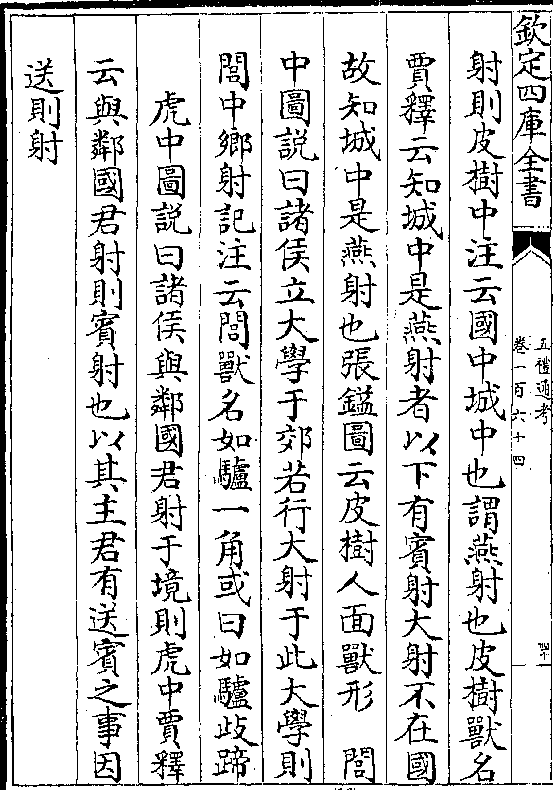 欽定四庫全書
五禮通考
卷一百六十四
四十
射則皮樹中注云國中城中也謂燕射也皮樹獸名
賈釋云知城中是燕射者以下有賓射大射不在國
故知城中是燕射也張鎰圖云皮樹人面獸形　閭
中圖説曰諸侯立大學于郊若行大射于此大學則
閭中鄉射記注云閭獸名如驢一角或曰如驢歧蹄
虎中圖説曰諸侯與鄰國君射于境則虎中賈釋
云與鄰國君射則賓射也以其主君有送賓之事因
送則射